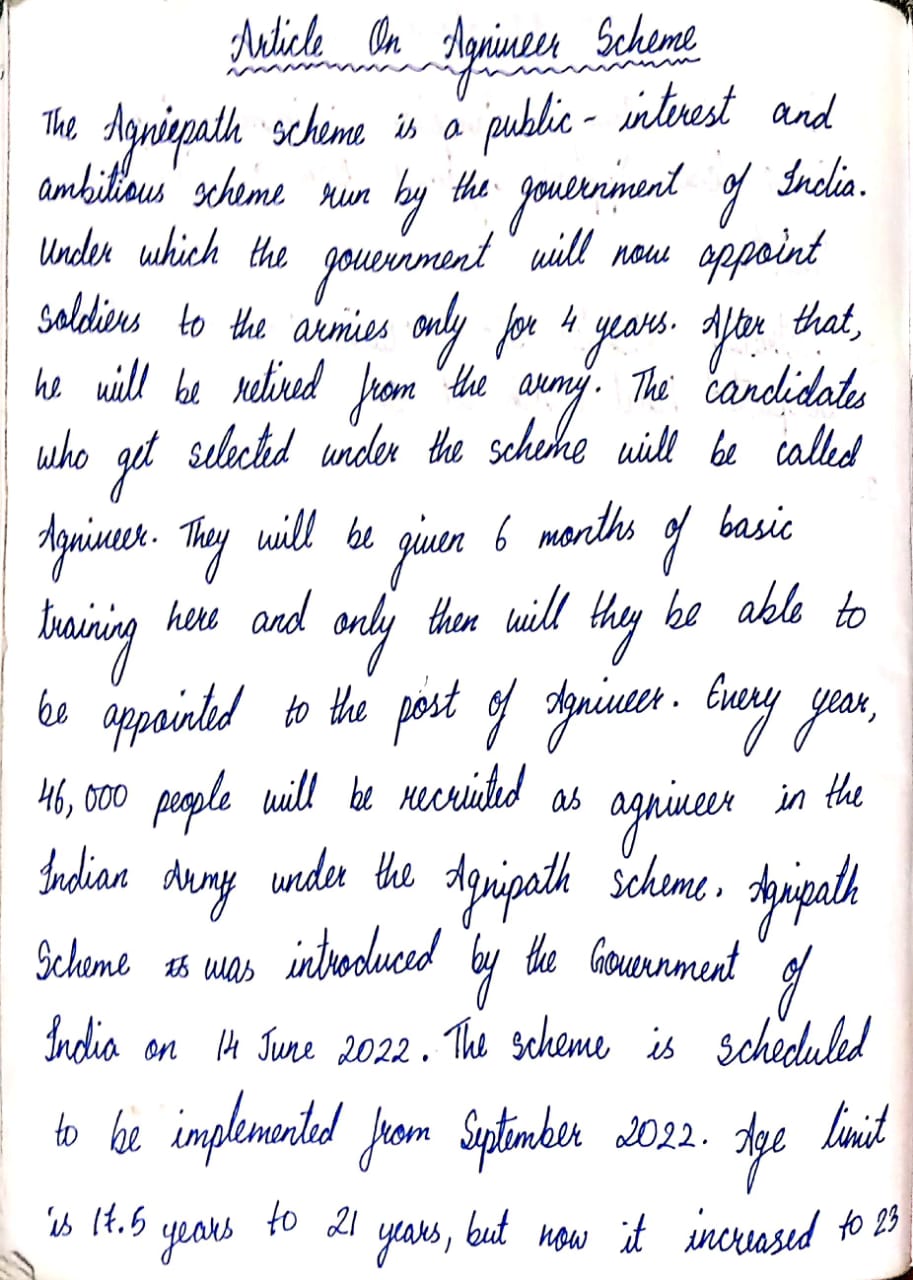 Article On Agniveer Scheme
The Agneepath scheme is a public - interest and
ambitious scheme run by the government of India.
Under which the government will now appoint
soldiers to the armies only for 4 years. After that,
he will be retired from the army. The candidates
who get selected under the scheme will be called
Agniveer. They will be given 6 months of basic
training here and only then will they be able to
be appointed to the post of Agniveer. Every year,
46,000 people will be recruited as agniveer in the
Indian Army under the Agnipath scheme. Agnipath
Scheme was introduced by the Government of
India on 14 June 2022. The scheme is scheduled
to be implemented from September 2022. Age limit
is 17.5 years to 21 years, but now it increased to 23